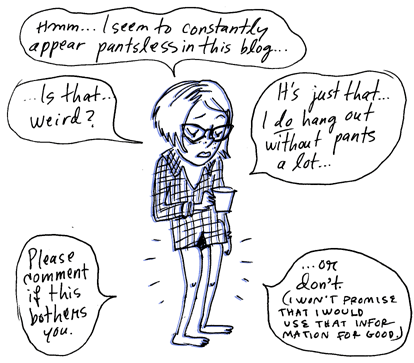 Hmm... I seem to constantly
appear pantsless in this blog...
...Is that...
weird?
It's just that...
I do hang out
without pants
a lot...
Please
comment
if this
bothers
you.
...or
don't.
(I WON'T PROMISE
THAT I WOULD
USE THAT INFOR
MATION FOR GOOD.)